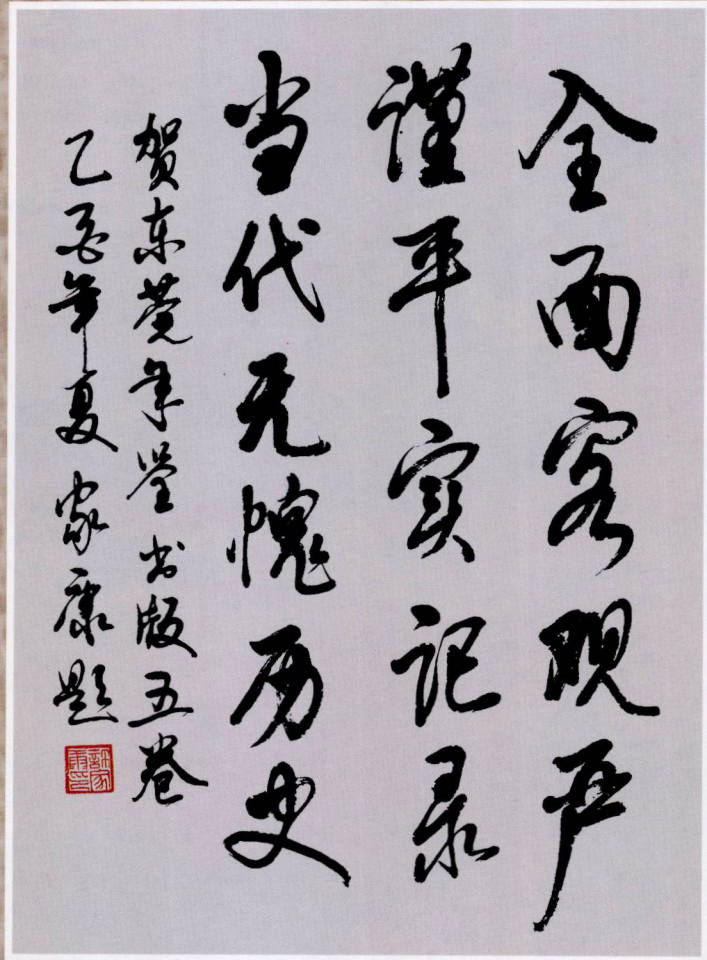 全面客观严
谨平实记录
当代无愧历史
贺东莞年鉴出版五卷
乙酉年夏家康题
許家康印